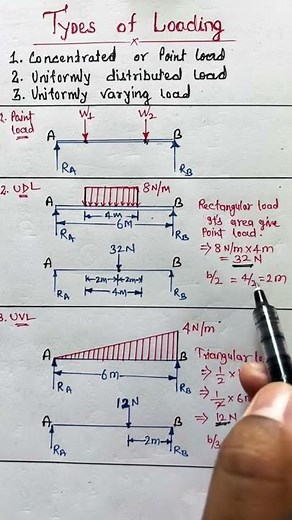 Types of Loading
1. Concentrated or Point Load
2. Uniformly distributed Load
3. Uniformly varying load
1. Point Load
W1 W2
A B
RA RB
2. UDL
8 N/m
A B
4m
6m
RA RB
Rectangular load
It's area give
Point load.
⇒ 8 N/m × 4m
= 32 N
b/2 = 4/2 = 2m
32 N
A B
2m 2m
4m
RA RB
3. UVL
4 N/m
A B
6m
RA RB
Triangular
⇒ 1/2 ×
⇒ 1/2 × 6m
⇒ 12 N
b/3
12N
A B
2m
RA RB